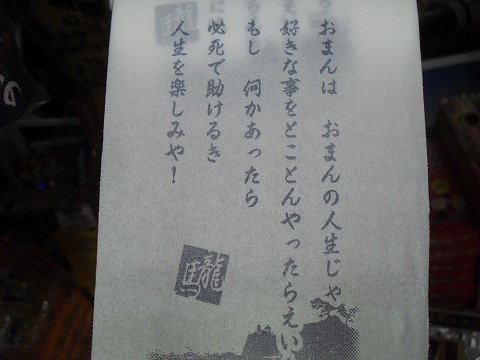 おまんは　おまんの人生じゃ
好きな事をとことんやったらえい
もし　何かあったら
必死で助けるき
人生を楽しみや！
龍馬